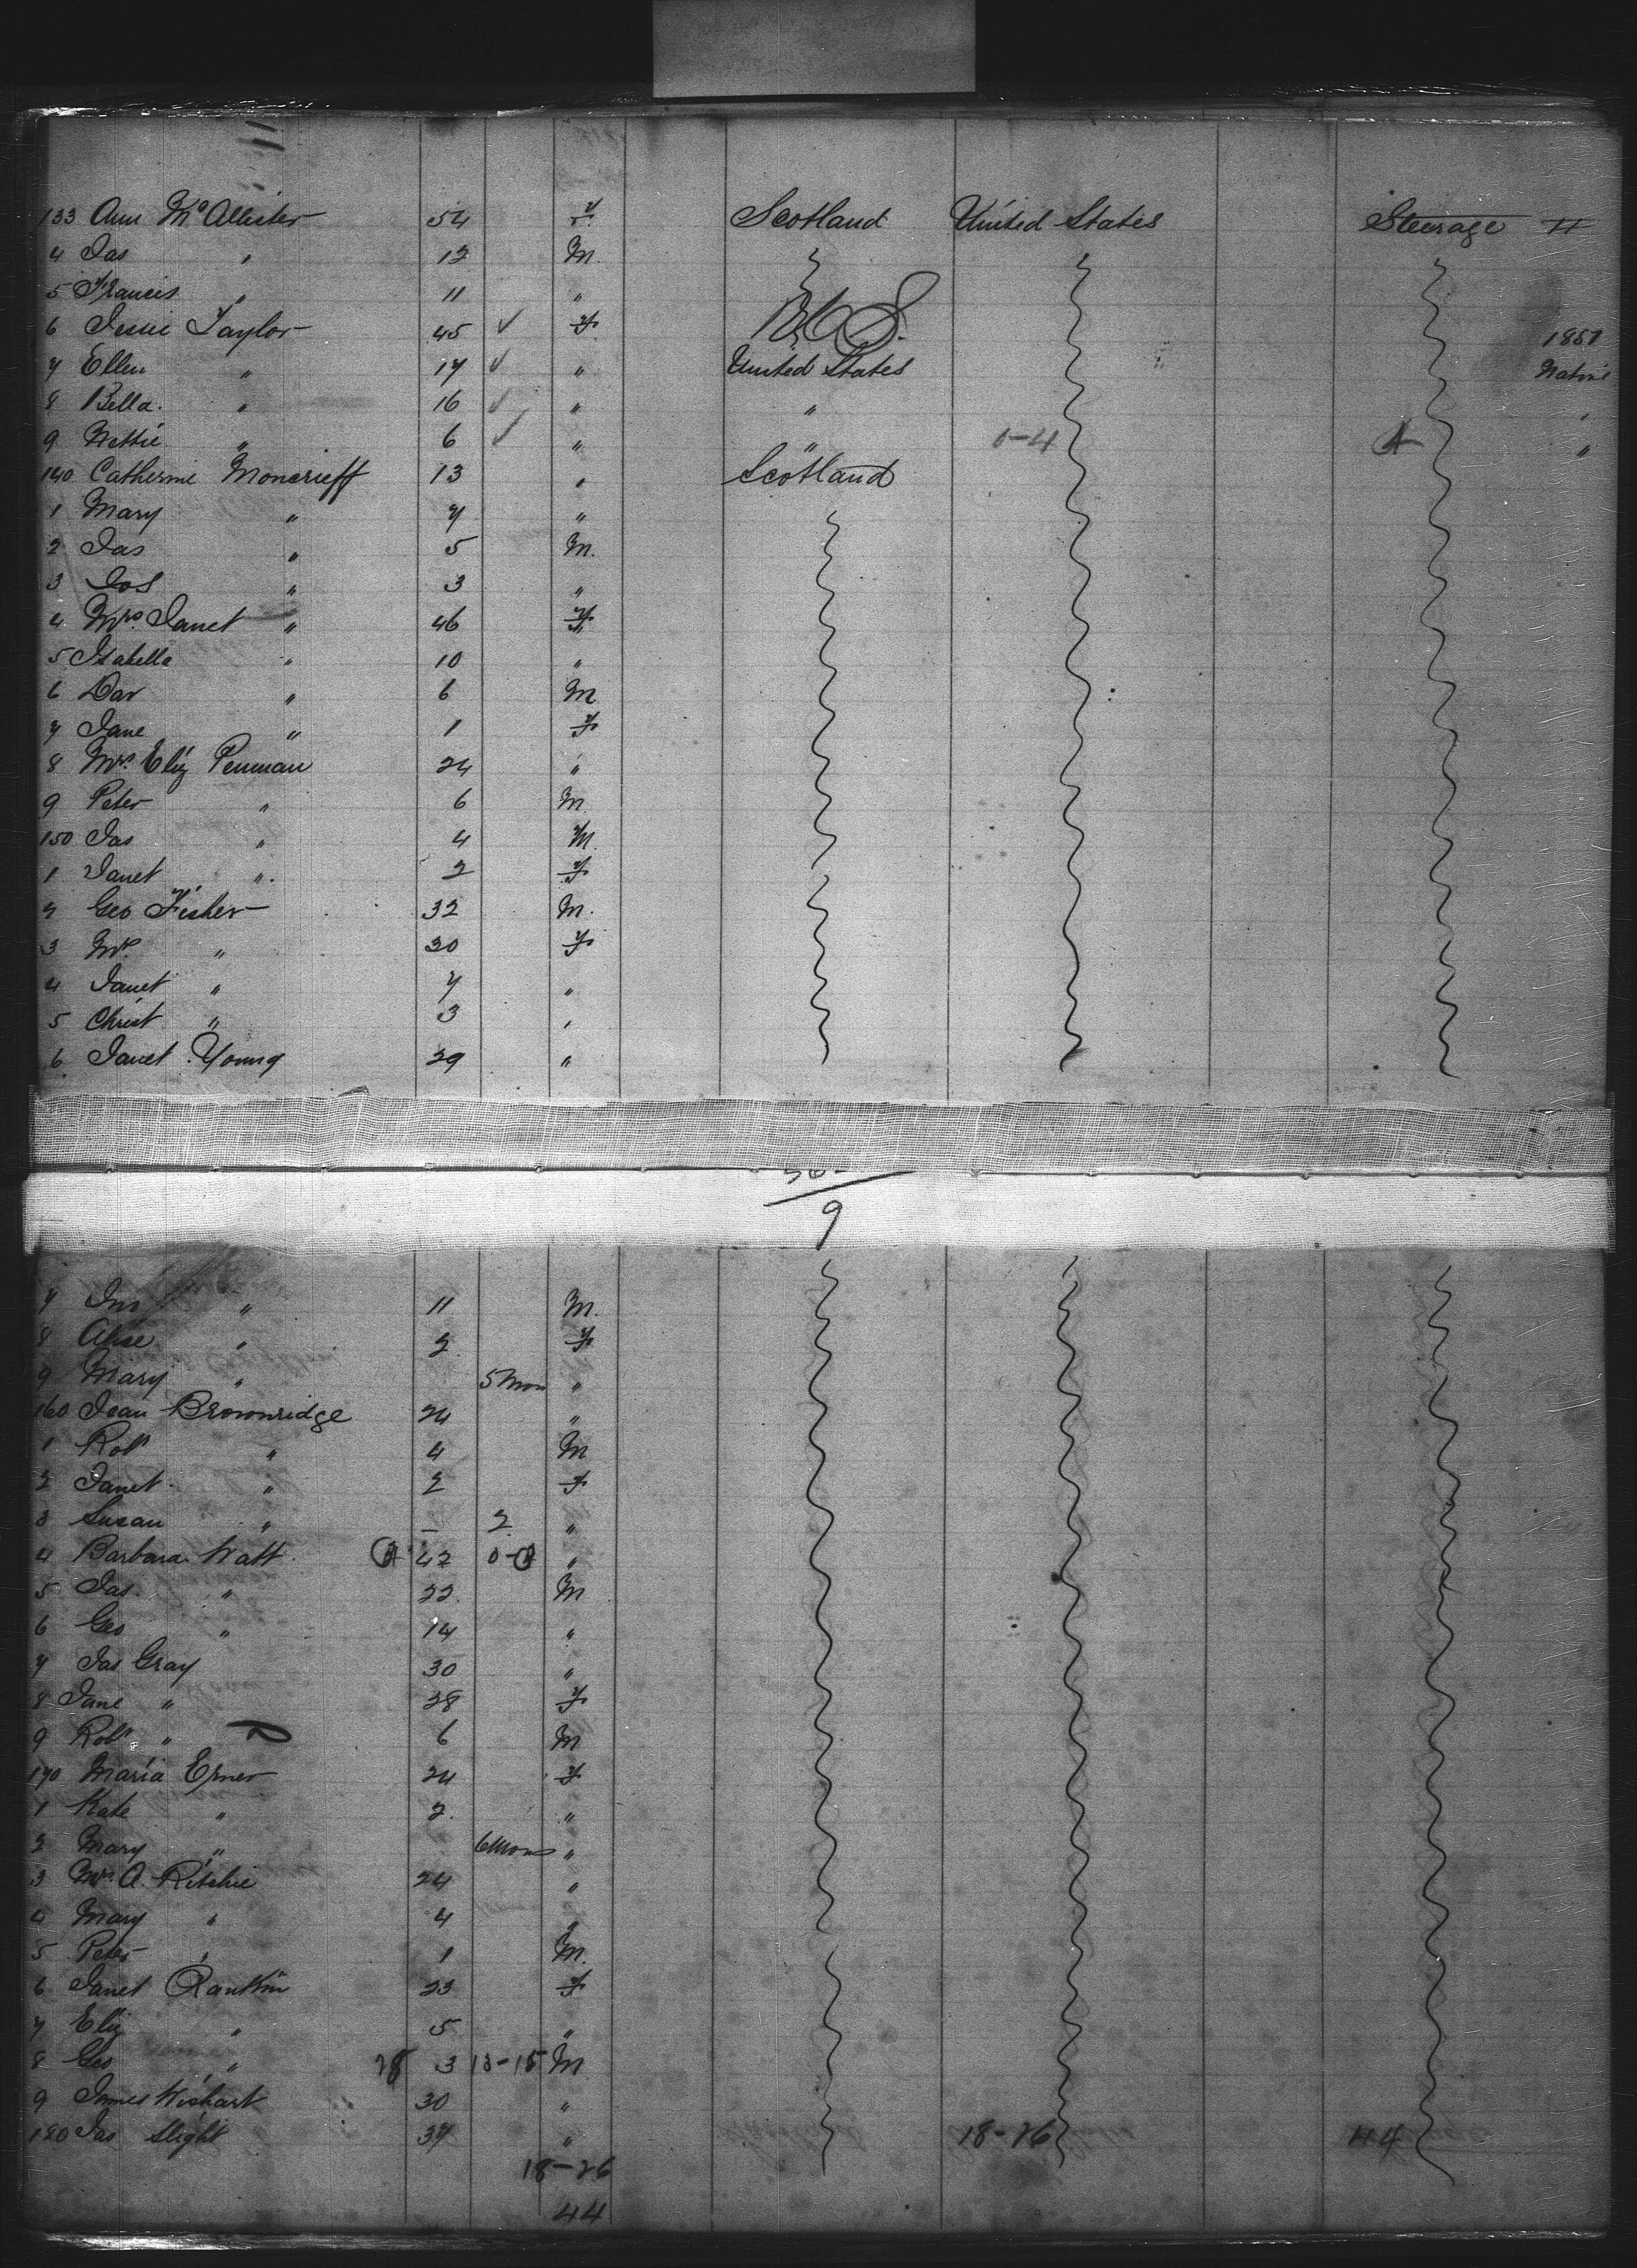 133 Ann McAllister 54 F. Scotland United States Steerage H
4 Jas " 12 M.
5 Francis " 11 "
6 Jessie Taylor 45 ✓ F. 1851
7 Ellen " 17 ✓ " United States Native
8 Bella. " 16 ✓ " " "
9 Nettie " 6 ✓ " " 0-4 4 "
140 Catherine Moncrieff 13 " Scotland
1 Mary " 7 "
2 Jas " 5 M.
3 Jos " 3 "
4 Mrs. Janet " 46 F
5 Isabella " 10 "
6 Dav " 6 M
7 Jane " 1 F
8 Mrs. Eliz Penman 24 "
9 Peter " 6 M
150 Jas " 4 M.
1 Janet " 2 F
2 Geo Fisher 32 M.
3 Mrs " 30 F
4 Janet " 7 "
5 Christ " 3 "
6 Janet Young 29 "
9
7 Jno " 11 M.
8 Alise " 2 F
9 Mary " 5 Mon "
160 Jean Brownridge 24 "
1 Robt " 4 M
2 Janet " 2 F
3 Susan " – 2 "
4 Barbara Watt 42 "
5 Jas " 22 M
6 Geo " 14 "
7 Jas Gray 30 "
8 Jane " 28 F
9 Robt " 6 M
170 Maria Esner 24 F
1 Kate " 2. "
2 Mary " 6 Mons "
3 Mrs. A. Ritchie 24 "
4 Mary " 4 "
5 Peter " 1 M.
6 Janet Rankin 23 F
7 Eliz " 5 "
8 Geo " 28 3 13-15 M
9 James Wishart 30 "
180 Jas Slight 37 " 18-26 44
18-26
44